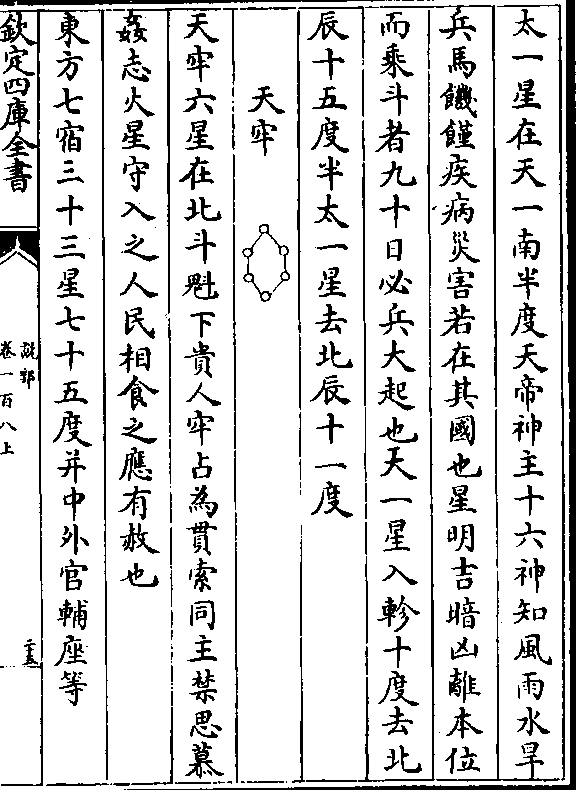 太一星在天一南半度天帝神主十六神知風雨水旱
兵馬饑饉疾病災害若在其國也星明吉暗凶離本位
而乘斗者九十日必兵大起也天一星入軫十度去北
辰十五度半太一星去北辰十一度
天牢
天牢六星在北斗魁下貴人牢占為貫索同主禁思慕
姦志火星守入之人民相食之應有赦也
東方七宿三十三星七十五度并中外官輔座等
欽定四庫全書
說郛
卷一百八上
三五